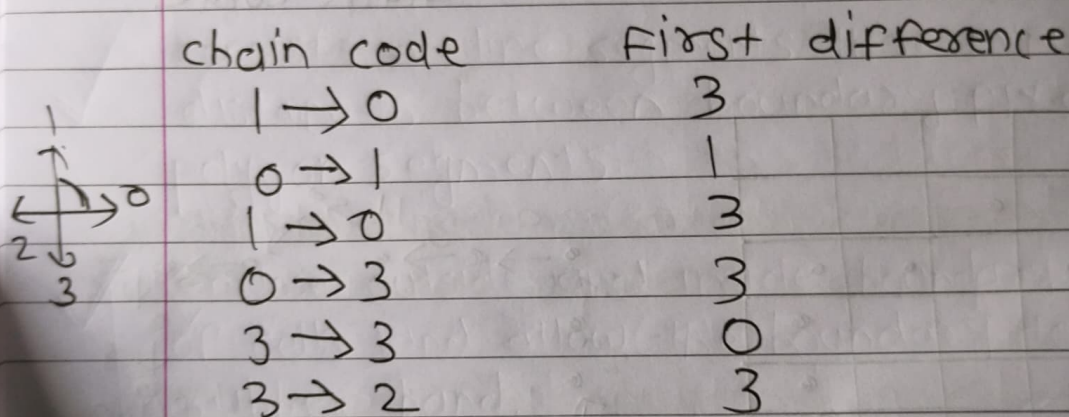 chain code First difference
1 → 0 3
1
0 → 1 1
0
1 → 0 3
2
0 → 3 3
3
3 → 3 0
3 → 2 3